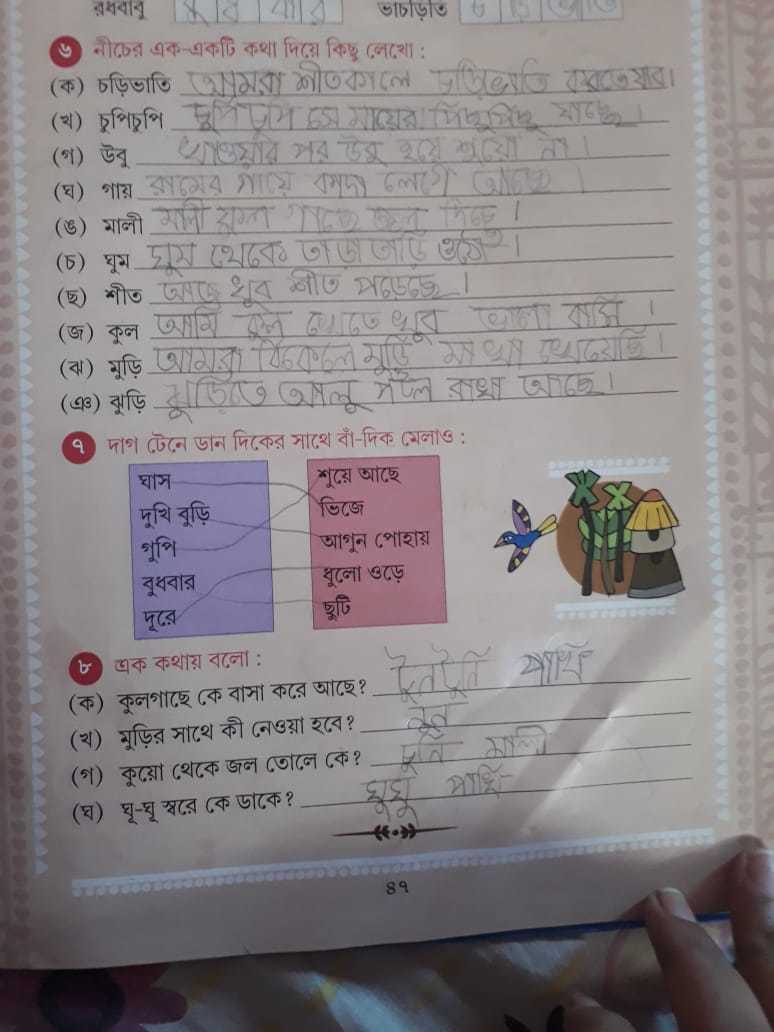 ৬ নীচের এক-একটি কথা দিয়ে কিছু লেখো :
(ক) চড়িভাতি আমরা শীতকালে চড়িভাতি করতে যাব।
(খ) চুপিচুপি চুপিচুপি সে মায়ের পিছুপিছু যাচ্ছে।
(গ) উবু খাওয়ার পর উবু হয়ে শুয়ো না।
(ঘ) গায় রামের গায়ে কাদা লেগে আছে।
(ঙ) মালী মালী ফুল গাছে জল দিচ্ছে।
(চ) ঘুম ঘুম থেকে তাড়াতাড়ি ওঠো।
(ছ) শীত আজ খুব শীত পড়েছে।
(জ) কুল আমি কুল খেতে খুব ভালো বাসি।
(ঝ) মুড়ি আমরা বিকেলে মুড়ি মাখা খেয়েছি।
(ঞ) ঝুড়ি ঝুড়িতে আলু পটল রাখা আছে।
৭ দাগ টেনে ডান দিকের সাথে বাঁ-দিক মেলাও :
ঘাস শুয়ে আছে
দুখি বুড়ি ভিজে
গুপি আগুন পোহায়
বুধবার ধুলো ওড়ে
দূরে ছুটি
৮ এক কথায় বলো :
(ক) কুলগাছে কে বাসা করে আছে? টুনটুনি পাখি
(খ) মুড়ির সাথে কী নেওয়া হবে? নুন
(গ) কুয়ো থেকে জল তোলে কে? মালী
(ঘ) ঘূ-ঘূ স্বরে কে ডাকে? ঘুঘু পাখি
৪৭